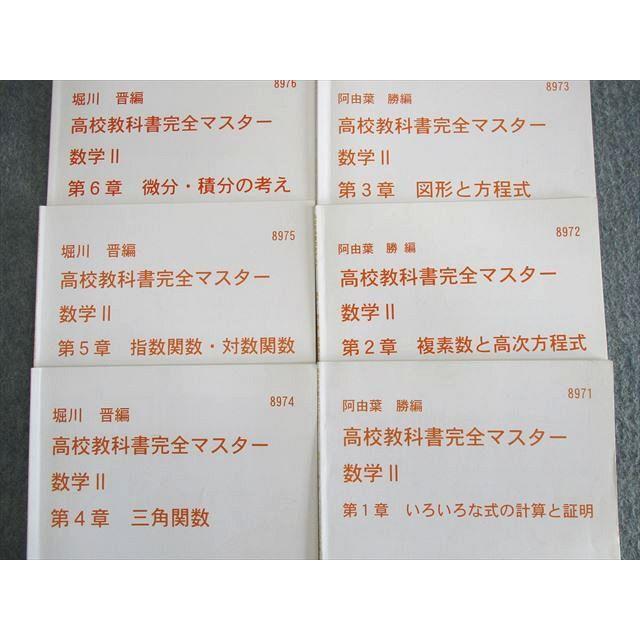 8976
堀川 晋編
高校教科書完全マスター
数学Ⅱ
第6章 微分・積分の考え
8973
阿由葉 勝編
高校教科書完全マスター
数学Ⅱ
第3章 図形と方程式
8975
堀川 晋編
高校教科書完全マスター
数学Ⅱ
第5章 指数関数・対数関数
8972
阿由葉 勝 編
高校教科書完全マスター
数学Ⅱ
第2章 複素数と高次方程式
8974
堀川 晋編
高校教科書完全マスター
数学Ⅱ
第4章 三角関数
8971
阿由葉 勝編
高校教科書完全マスター
数学Ⅱ
第1章 いろいろな式の計算と証明